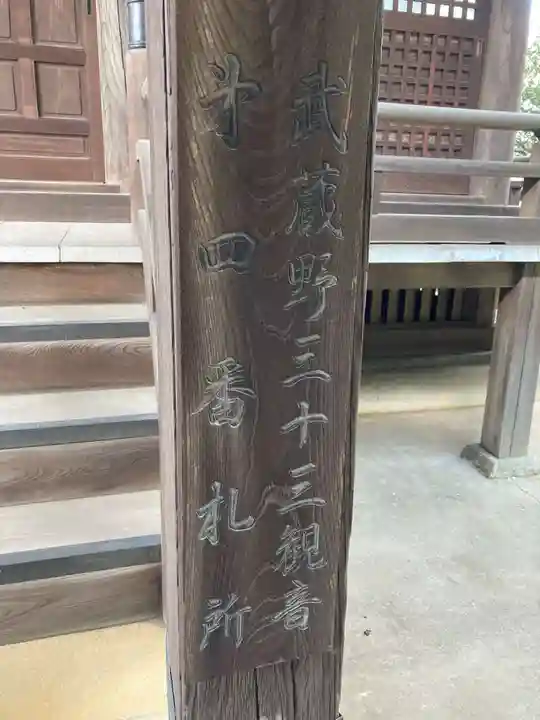 武蔵野三十三観音
㐧四番札所